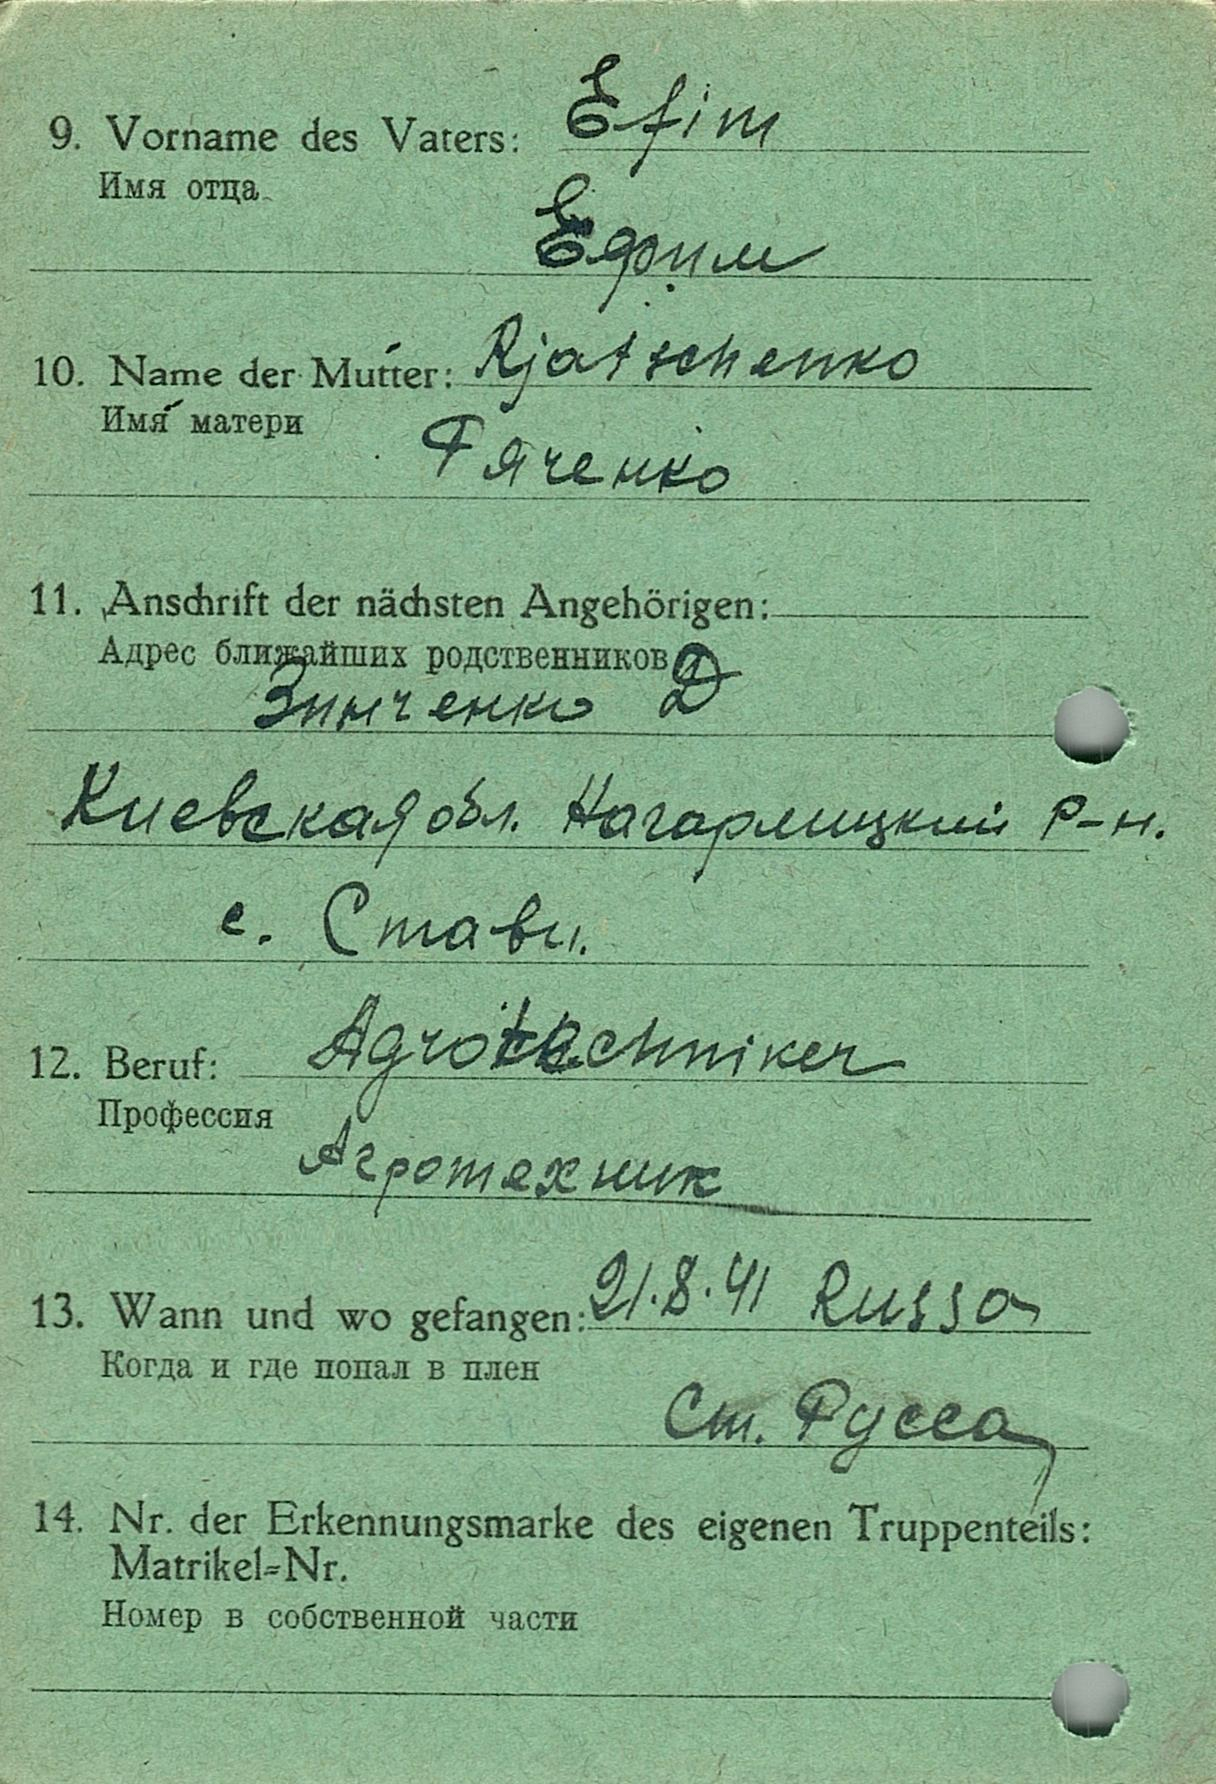 9. Vorname des Vaters: Efim
Имя отца
Ефим
10. Name der Mutter: Rjatschenko
Имя матери
Ряченко
11. Anschrift der nächsten Angehörigen:
Адрес ближайших родственников
Зинченко Д
Киевская обл. Кагарлицкий р-н.
с. Ставы.
12. Beruf: Agrotechniker
Профессия
Агротехник
13. Wann und wo gefangen: 21.8.41 Russa
Когда и где попал в плен
Ст. Русса
14. Nr. der Erkennungsmarke des eigenen Truppenteils:
Matrikel=Nr.
Номер в собственной части